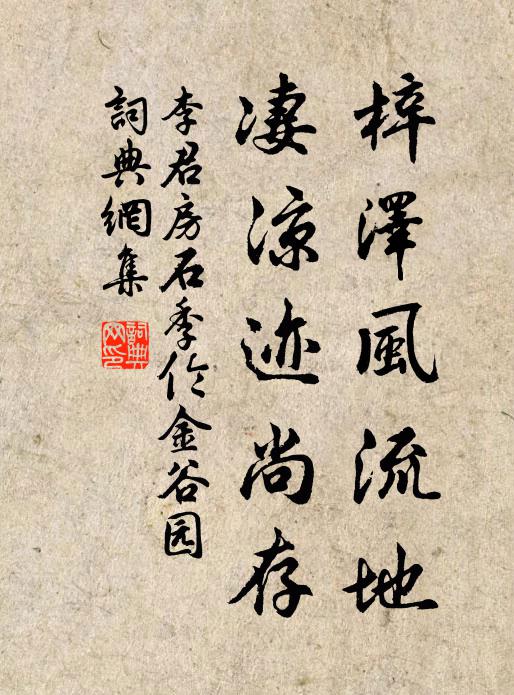 梓澤風流地
淒涼迹尚存
李君房石季伦金谷园
詞典網集
詞典網印